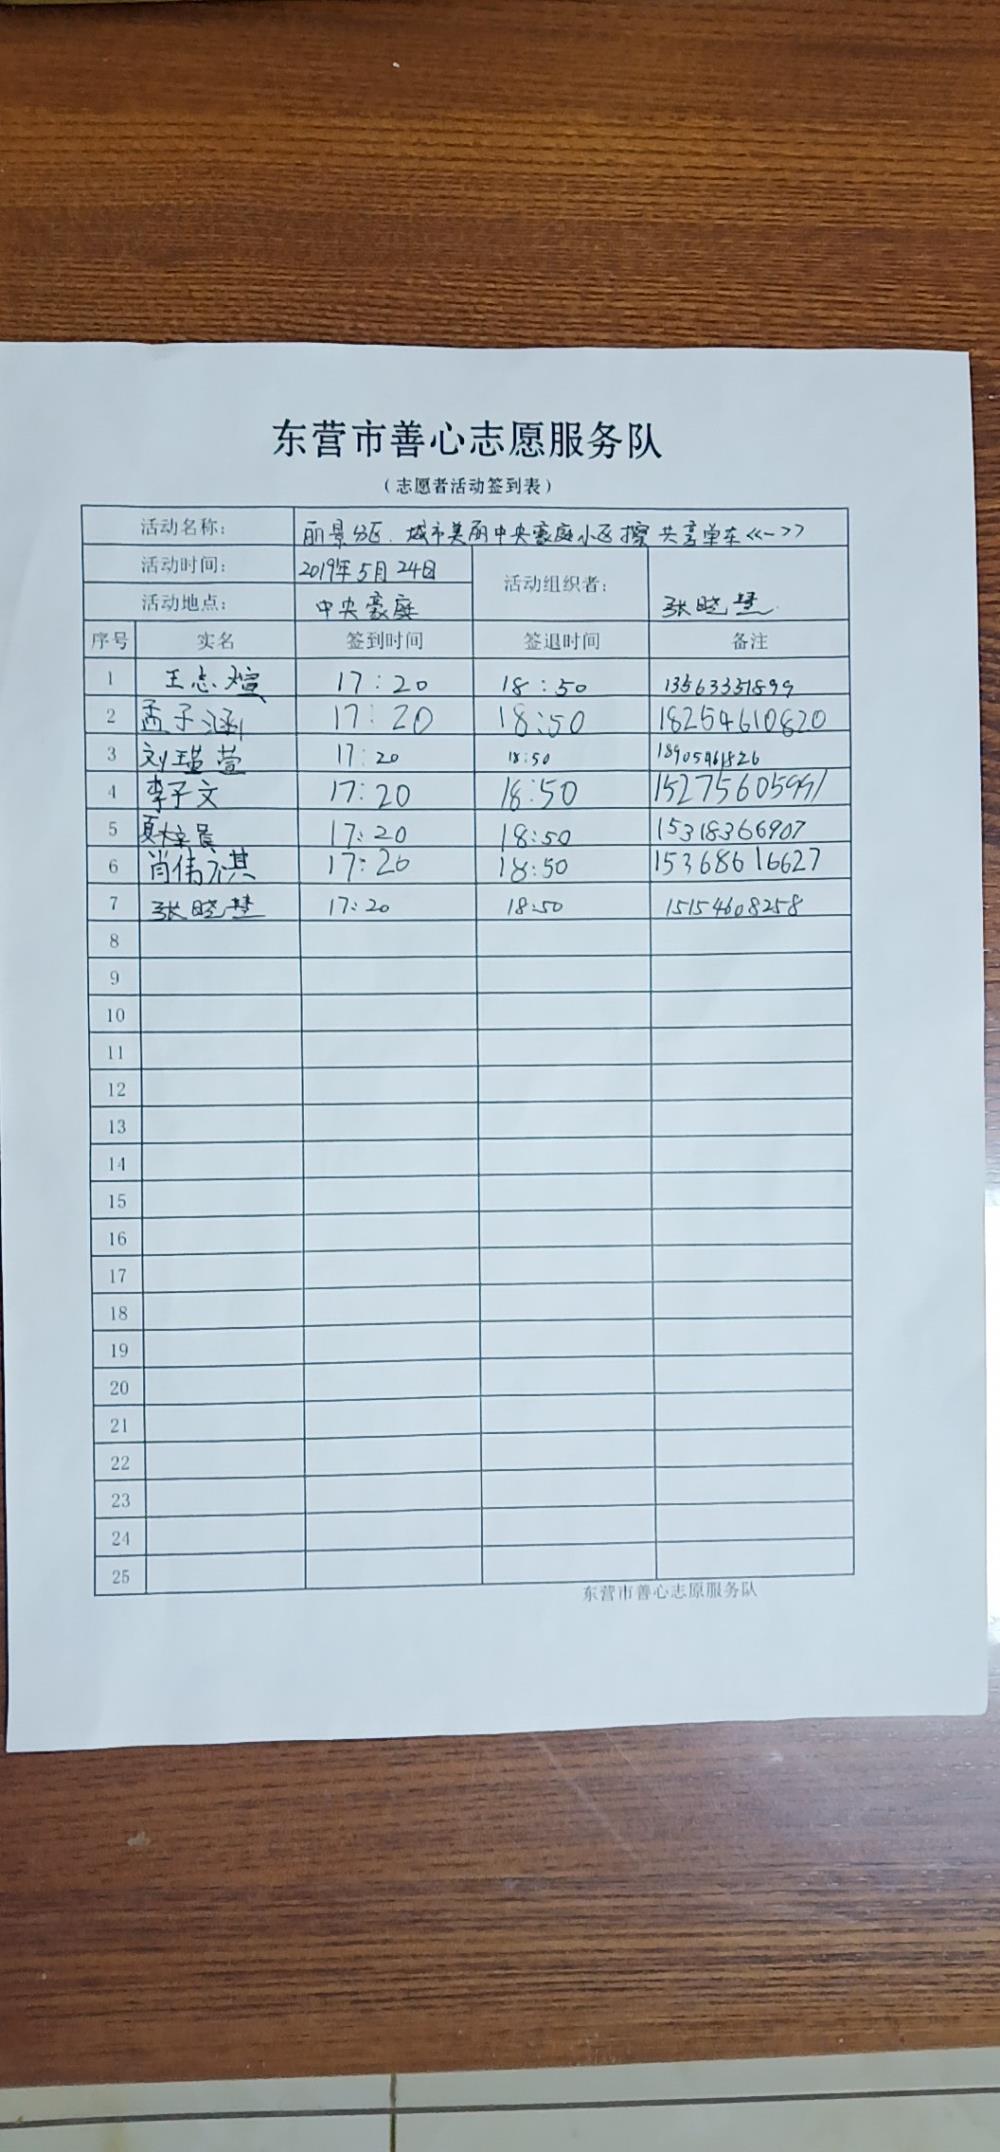 东营市善心志愿服务队
（志愿者活动签到表）
活动名称： 丽景分区.城市美丽中央豪庭小区擦共享单车<<一>>
活动时间： 2019年5月24日 活动组织者： 张晓慧
活动地点： 中央豪庭
序号 实名 签到时间 签退时间 备注
1 王志煊 17:20 18:50 13563351899
2 孟子涵 17:20 18:50 18254610820
3 刘瑾萱 17:20 18:50 18905461826
4 李子文 17:20 18:50 15275605991
5 17:20 18:50 15318366907
6 肖伟祺 17:20 18:50 15368616627
7 张晓慧 17:20 18:50 15154608258
8
9
10
11
12
13
14
15
16
17
18
19
20
21
22
23
24
25
东营市善心志原服务队